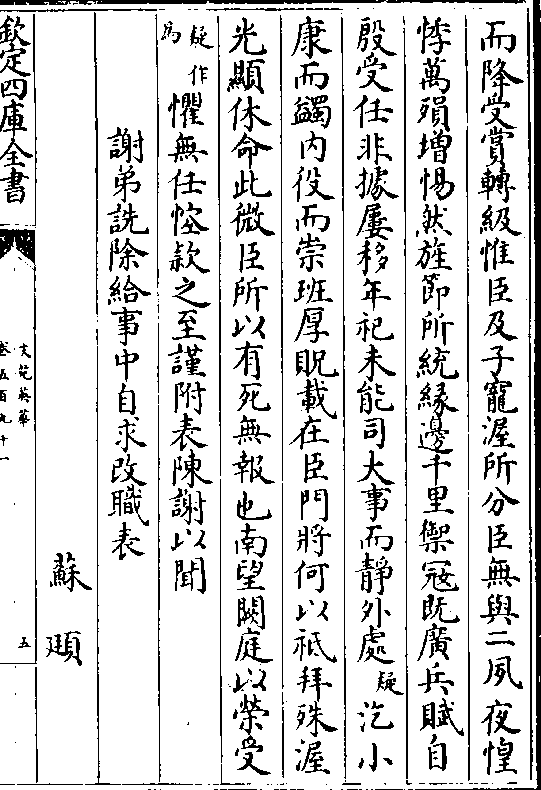 而降受賞轉級惟臣及子寵渥所分臣無與二夙夜惶
悸萬殞增惕然旌節所統緣邊千里禦冦既廣兵賦自
殷受任非據屢移年祀未能司大事而靜外處疑汔小
康而蠲内役而崇班厚貺載在臣門將何以祗拜殊渥
光顯休命此微臣所以有死無報也南望闕庭以榮受
疑作為懼無任悾款之至謹附表陳謝以聞
謝弟詵除給事中自求改職表
蘇頲
欽定四庫全書
文苑英華
卷五百九十一
五